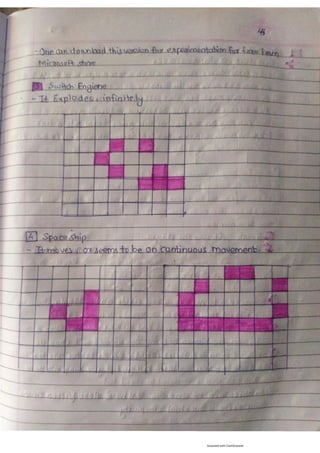 - One can download this version for experimentation for free from
Microsoft store
3 Switch Engine
- It Explodes infinitely
4 Space ship
- It moves, or seems to be on continuous movement.
Scanned with CamScanner